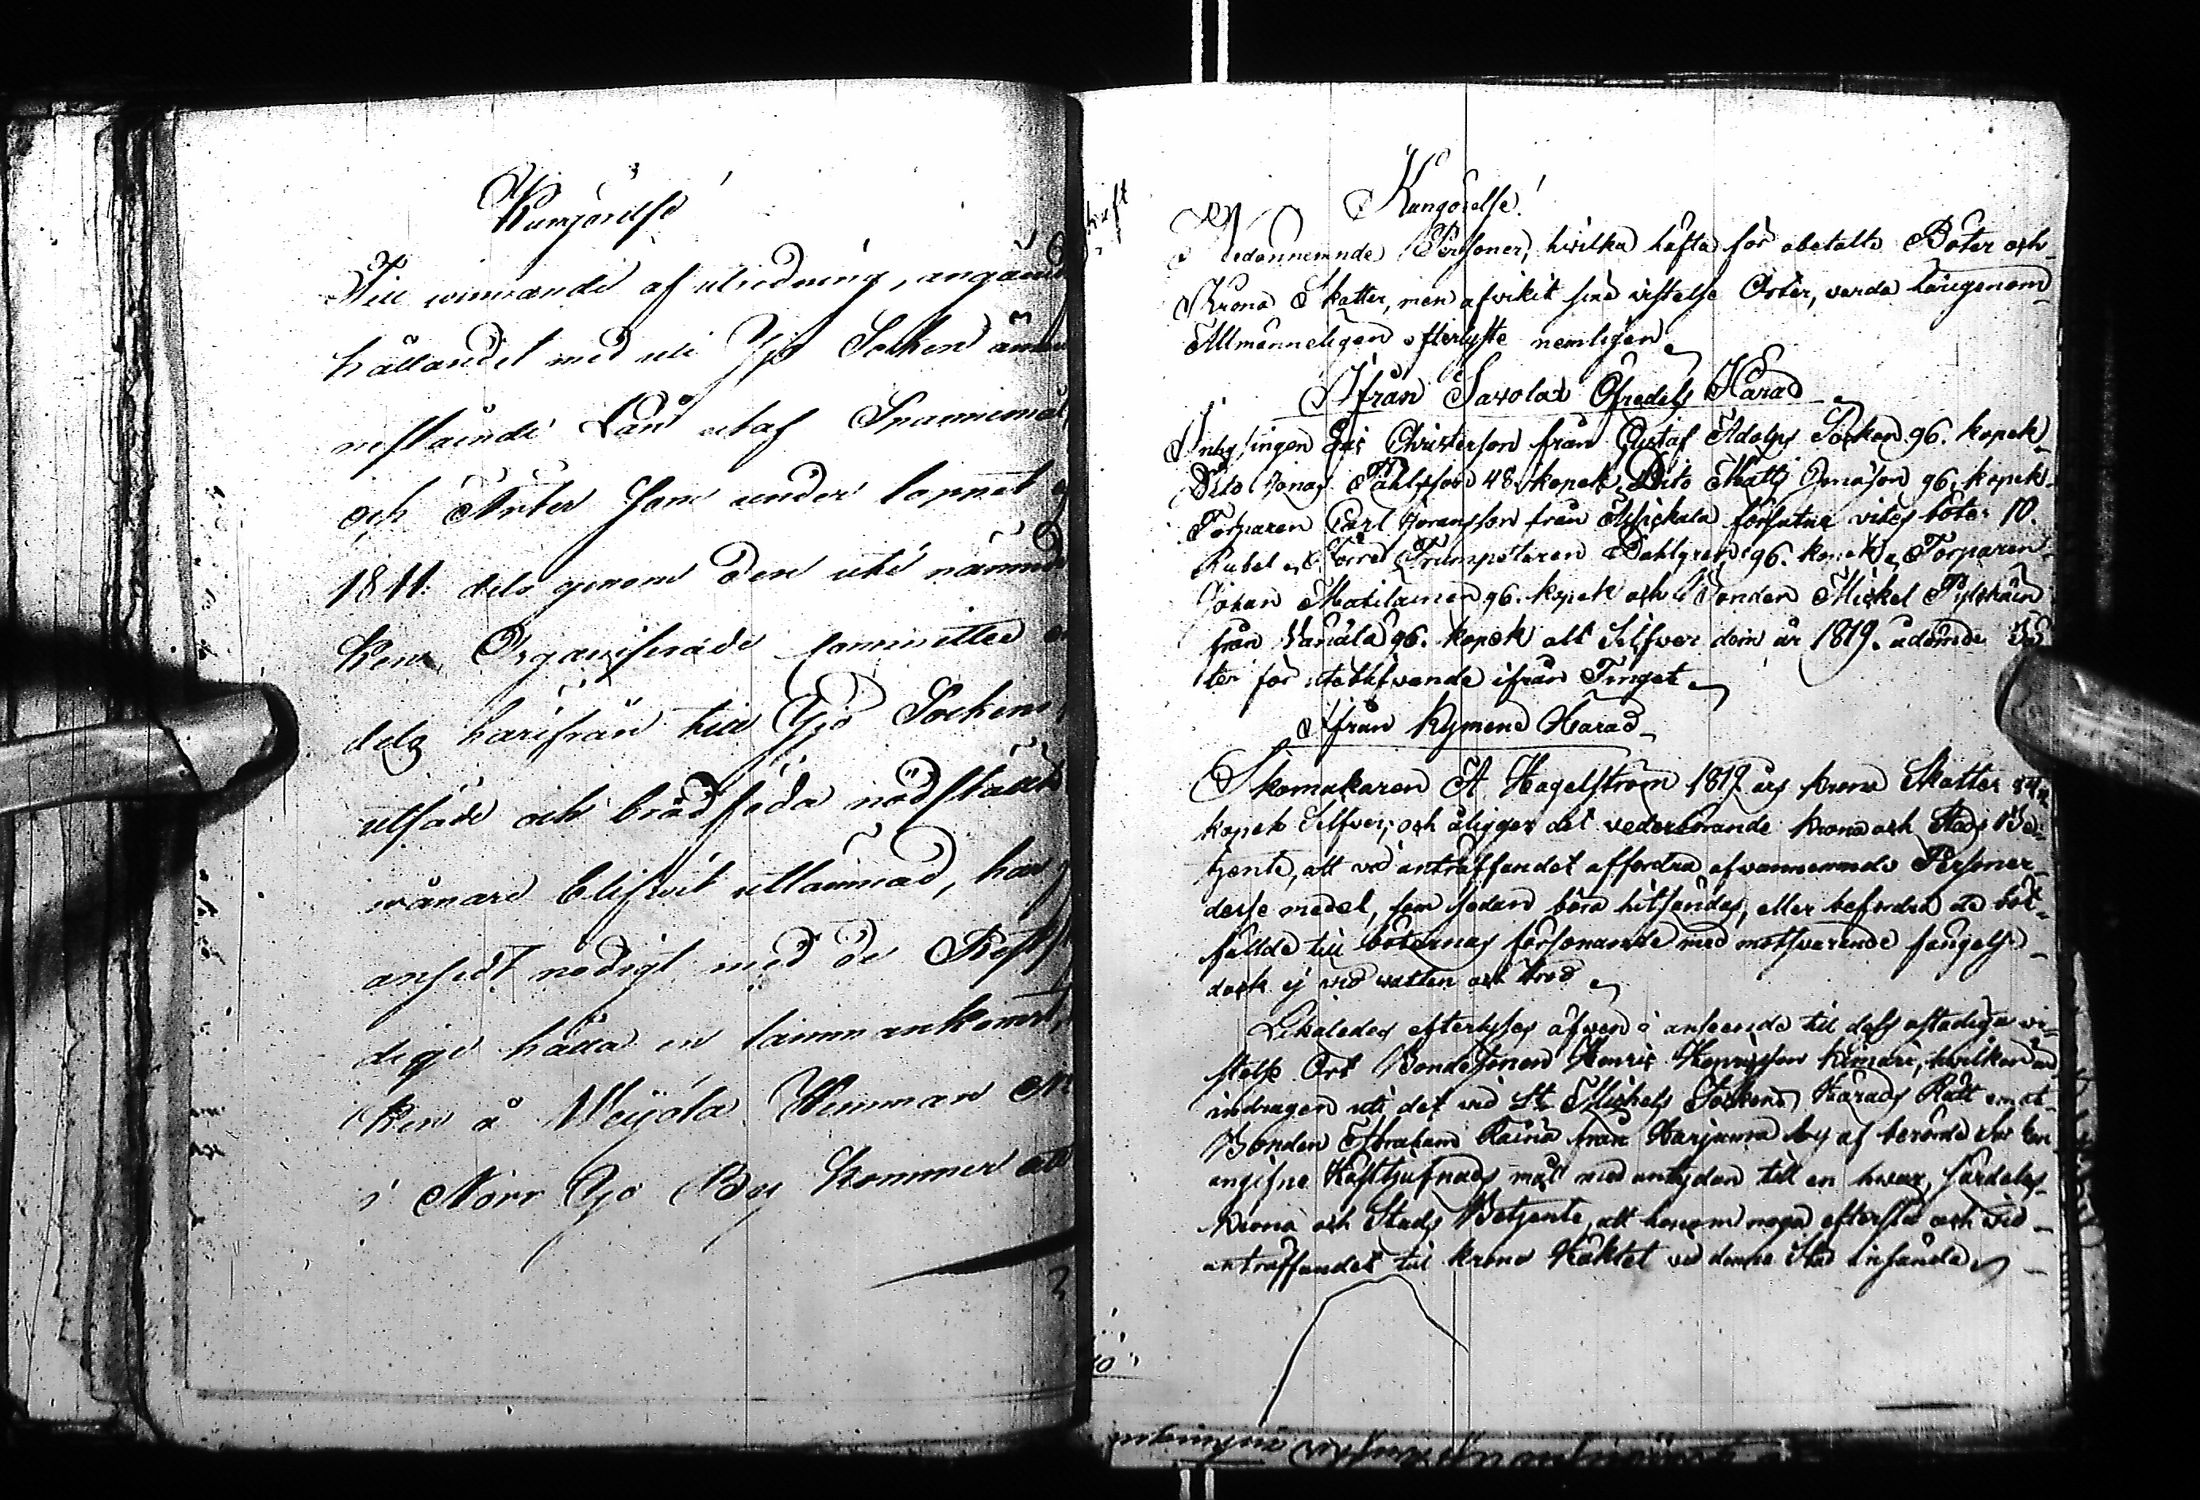 Kungörelse
Till vinnande af utredning, angående
hållandet med uti Jjo Socken ännu
restainde Lån utaf Spannemål
och Ärter som under loppet
1811. dels genom den uti nämnde
ken Organiserade Committee
dels härifrån till Jjo Sockens
utsäde och brödföda nödstälde
invånare blifvit utlämnad, har
ansedt nödigt med de Rest
dige hålla en sammankomst,
ken å Weijola Hemman
i Norr Jjo By kommer att
Kungörelse!
Nedannemnde Personer, hvilka häfta för obetalte Böter och
Krono Skatter, men afvikit sine vistelse Orter, varda härigenom
Allmänneligen efterlyste nemligen
Ifrån Savolax Öfredels Härad
Inhysingen Christerson från Gustaf Adolps Socken 96. kopek
Dito Jonas Påhlsson 48. kopek Dito Matts 96. kopek
Torparen Carl Göransson från försutne vites böter 10.
Rubel Förre Trumpetaren Dahlgren 96. kopek, Torparen
Johan Matilainen 96. kopek och Bonden Mickel
från 96. kopek alt Silfver dem år 1819. ådömde Bö
ter för uteblifvande ifrån Tinget
Ifrån Kymene Härad
Skomakaren A Hagelström 1819 års Krono Skatter
kopek Silfver; och åligger det vederbörande Krono och Stads Be-
tjente, att vid anträffandet affordra ofvannemnde Personer
desse medel, som sedan böra hitsändas, eller befordra de böt-
fällde till böternas försonande med motsvarande fängelse
dock ej vid vatten och bröd
Likaledes efterlyses äfven i anseende till dess ostadiga vi-
stelse Ort Bondesonen Henric Henricsson Kimari, hvilken
indragen uti det vid St Michels Sockens Härads Rätt emot
Bonden Abraham Räinä från Harjumaa by af berörde
angifne Hästtjufnads mål med antydan till en hvar, särdeles
Krono och Stads Betjente, att honom noga efterslå och vid
anträffandet till Krono Häktet vid denne Stad insända